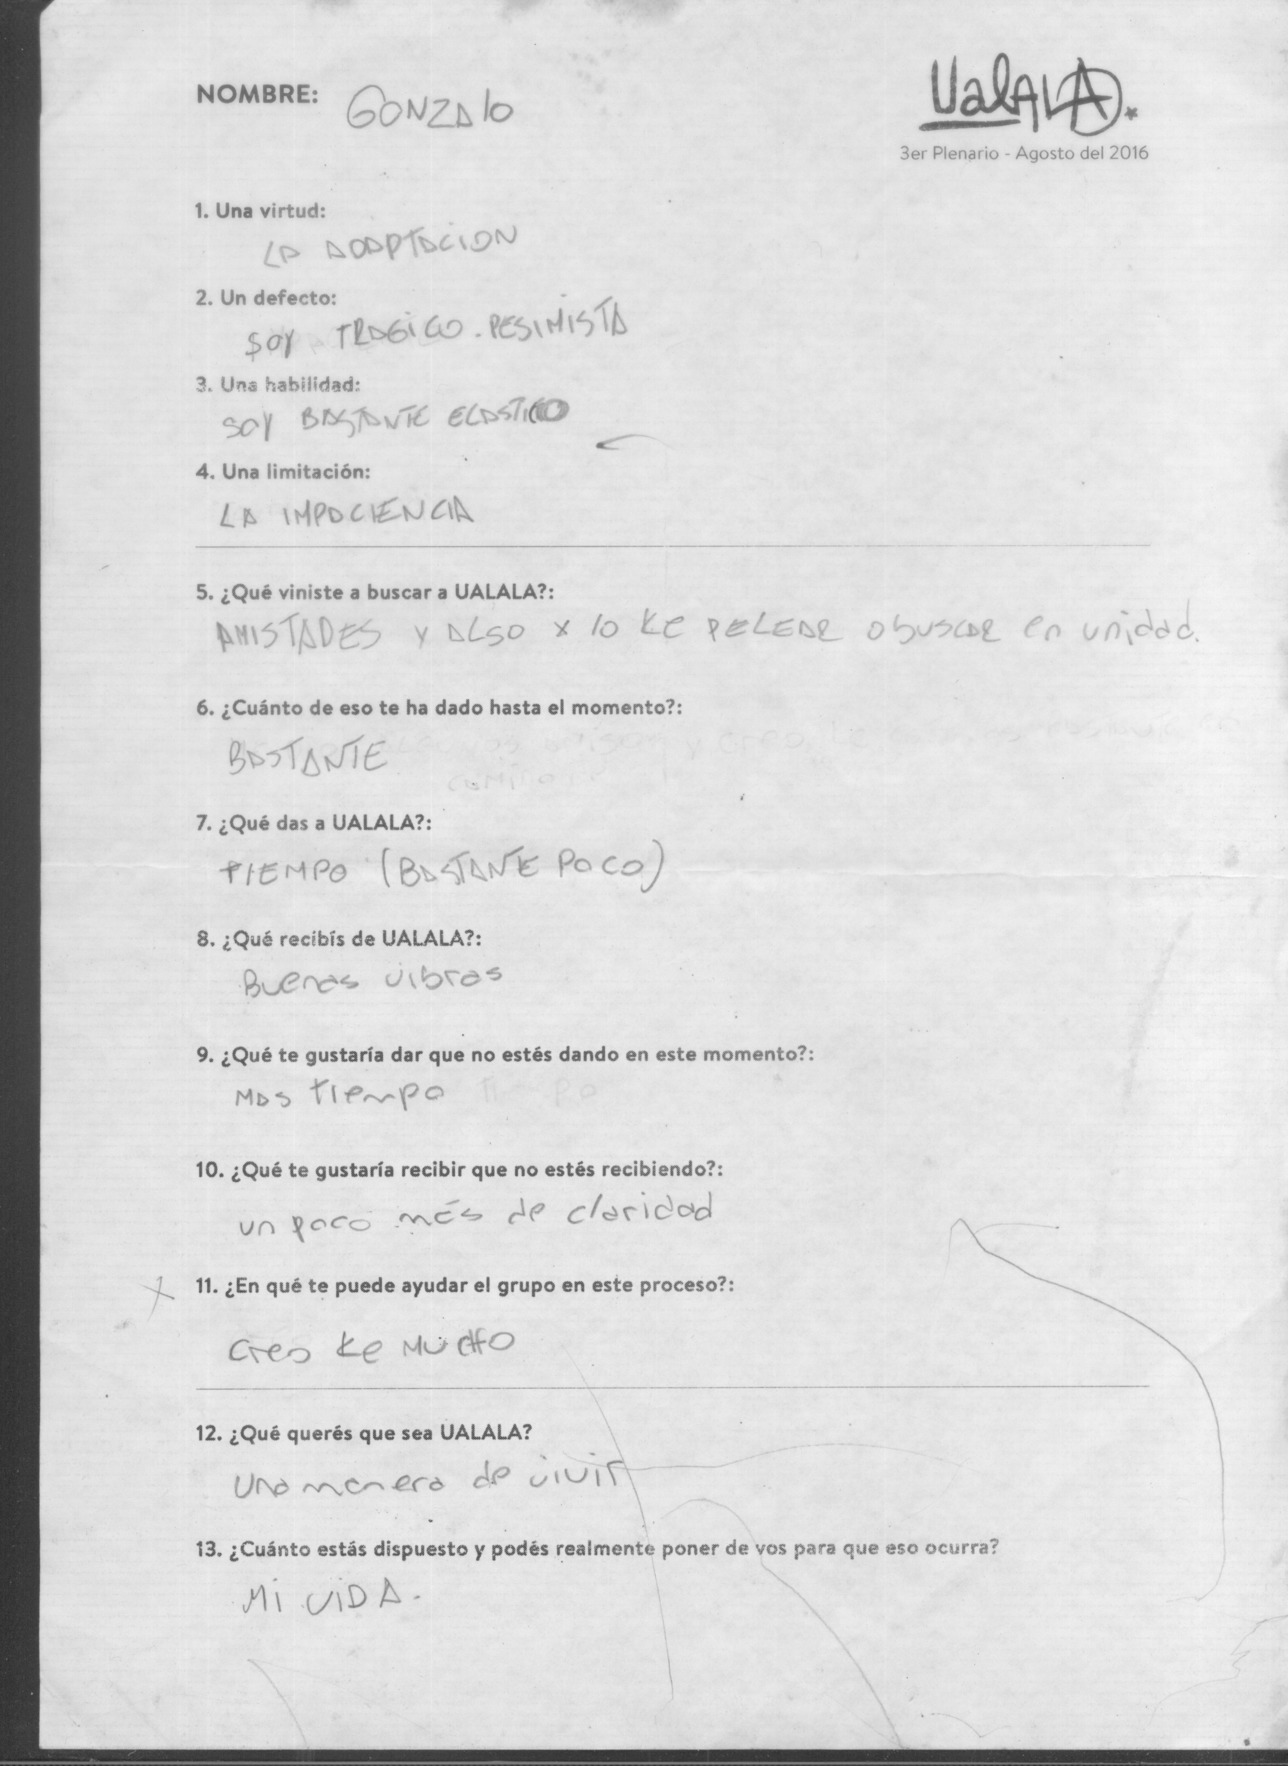 NOMBRE: GONZAlo
UalALA.
3er Plenario - Agosto del 2016
1. Una virtud:
LA ADAPTACION
2. Un defecto:
SOY TRAGICO. PESIMISTA
3. Una habilidad:
SOY BASTANTE ELASTICO
4. Una limitación:
LA IMPACIENCIA
5. ¿Qué viniste a buscar a UALALA?:
AMISTADES Y ALGO X lo KE PELEAR o buscar en unidad.
6. ¿Cuánto de eso te ha dado hasta el momento?:
BASTANTE
7. ¿Qué das a UALALA?:
TIEMPO (BASTANTE POCO)
8. ¿Qué recibís de UALALA?:
Buenas vibras
9. ¿Qué te gustaría dar que no estés dando en este momento?:
MAS tiempo
10. ¿Qué te gustaría recibir que no estés recibiendo?:
un poco más de claridad
11. ¿En qué te puede ayudar el grupo en este proceso?:
creo ke MUCHO
12. ¿Qué querés que sea UALALA?
Una manera de vivir
13. ¿Cuánto estás dispuesto y podés realmente poner de vos para que eso ocurra?
Mi VIDA.